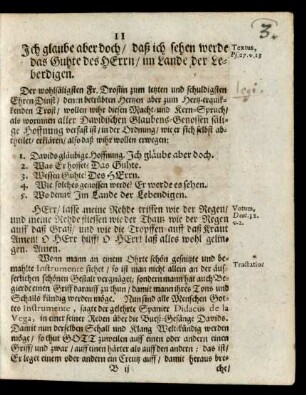 11
3.
Ich glaube aber doch / daß ich sehen werde
das Guhte des HErrn / im Lande der Le-
bendigen.
Textus,
Ps. 27. v. 13
Der wohlsäligsten Fr. Drostin zum letzten und schuldigsten
Ehren-Dinst / denen betrübten Hertzen aber zum Hertz-erquik-
kenden Trost / wollen wihr diesen Macht- und Kern-Spruch /
als worinnen aller Davidischen Glaubens-Genossen säli-
ge Hoffnung verfasst ist / in der Ordnung / wie er sich selbst ab-
theilet / erklären / also daß wihr wollen erwegen:
legi.
1. Davids gläubige Hoffnung. Ich glaube aber doch.
2. Was Er hoffet: Das Guhte.
3. Wessen Guhte: Des HErrn.
4. Wie solches genossen werde? Er worde es sehen.
5. Wo denn? Im Lande der Lebendigen.
HErr / lasse meine Rehde triffen wie der Regen /
und meine Rehde fliessen wie der Thau / wie der Regen
auff daß Graß / und wie die Tropffen auff daß Kraut
Amen! O HErr hilff / O HErr laß alles wohl gelin-
gen. Amen.
Votum,
Deut. 32.
v. 2.
Wenn mann an einem Ohrte schön geputzte und be-
mahlte Instrumente siehet / so ist man nicht allein an der äus-
serlichen schönen Gestalt vergnüget / sondern mann hat auch Be-
gierde einen Griff darauff zu thun / damit mann ihres Tons und
Schalls kündig werden möge. Nun sind alle Menschen Got-
tes Instrumente, saget der gelehrte Spanier Didacus de la
Vega, in einer seiner Reden über die Busß-Gesänge Davids.
Damit nun derselben Schall und Klang Welt-kündig werden
möge / so thut GOTT zuweilen auff einen oder andern einen
Griff / und zwar / auff einen härter als auff den andern: das ist /
Er leget einem oder andern ein Creutz auff / damit heraus bre-
Tractatio
B ij
che /